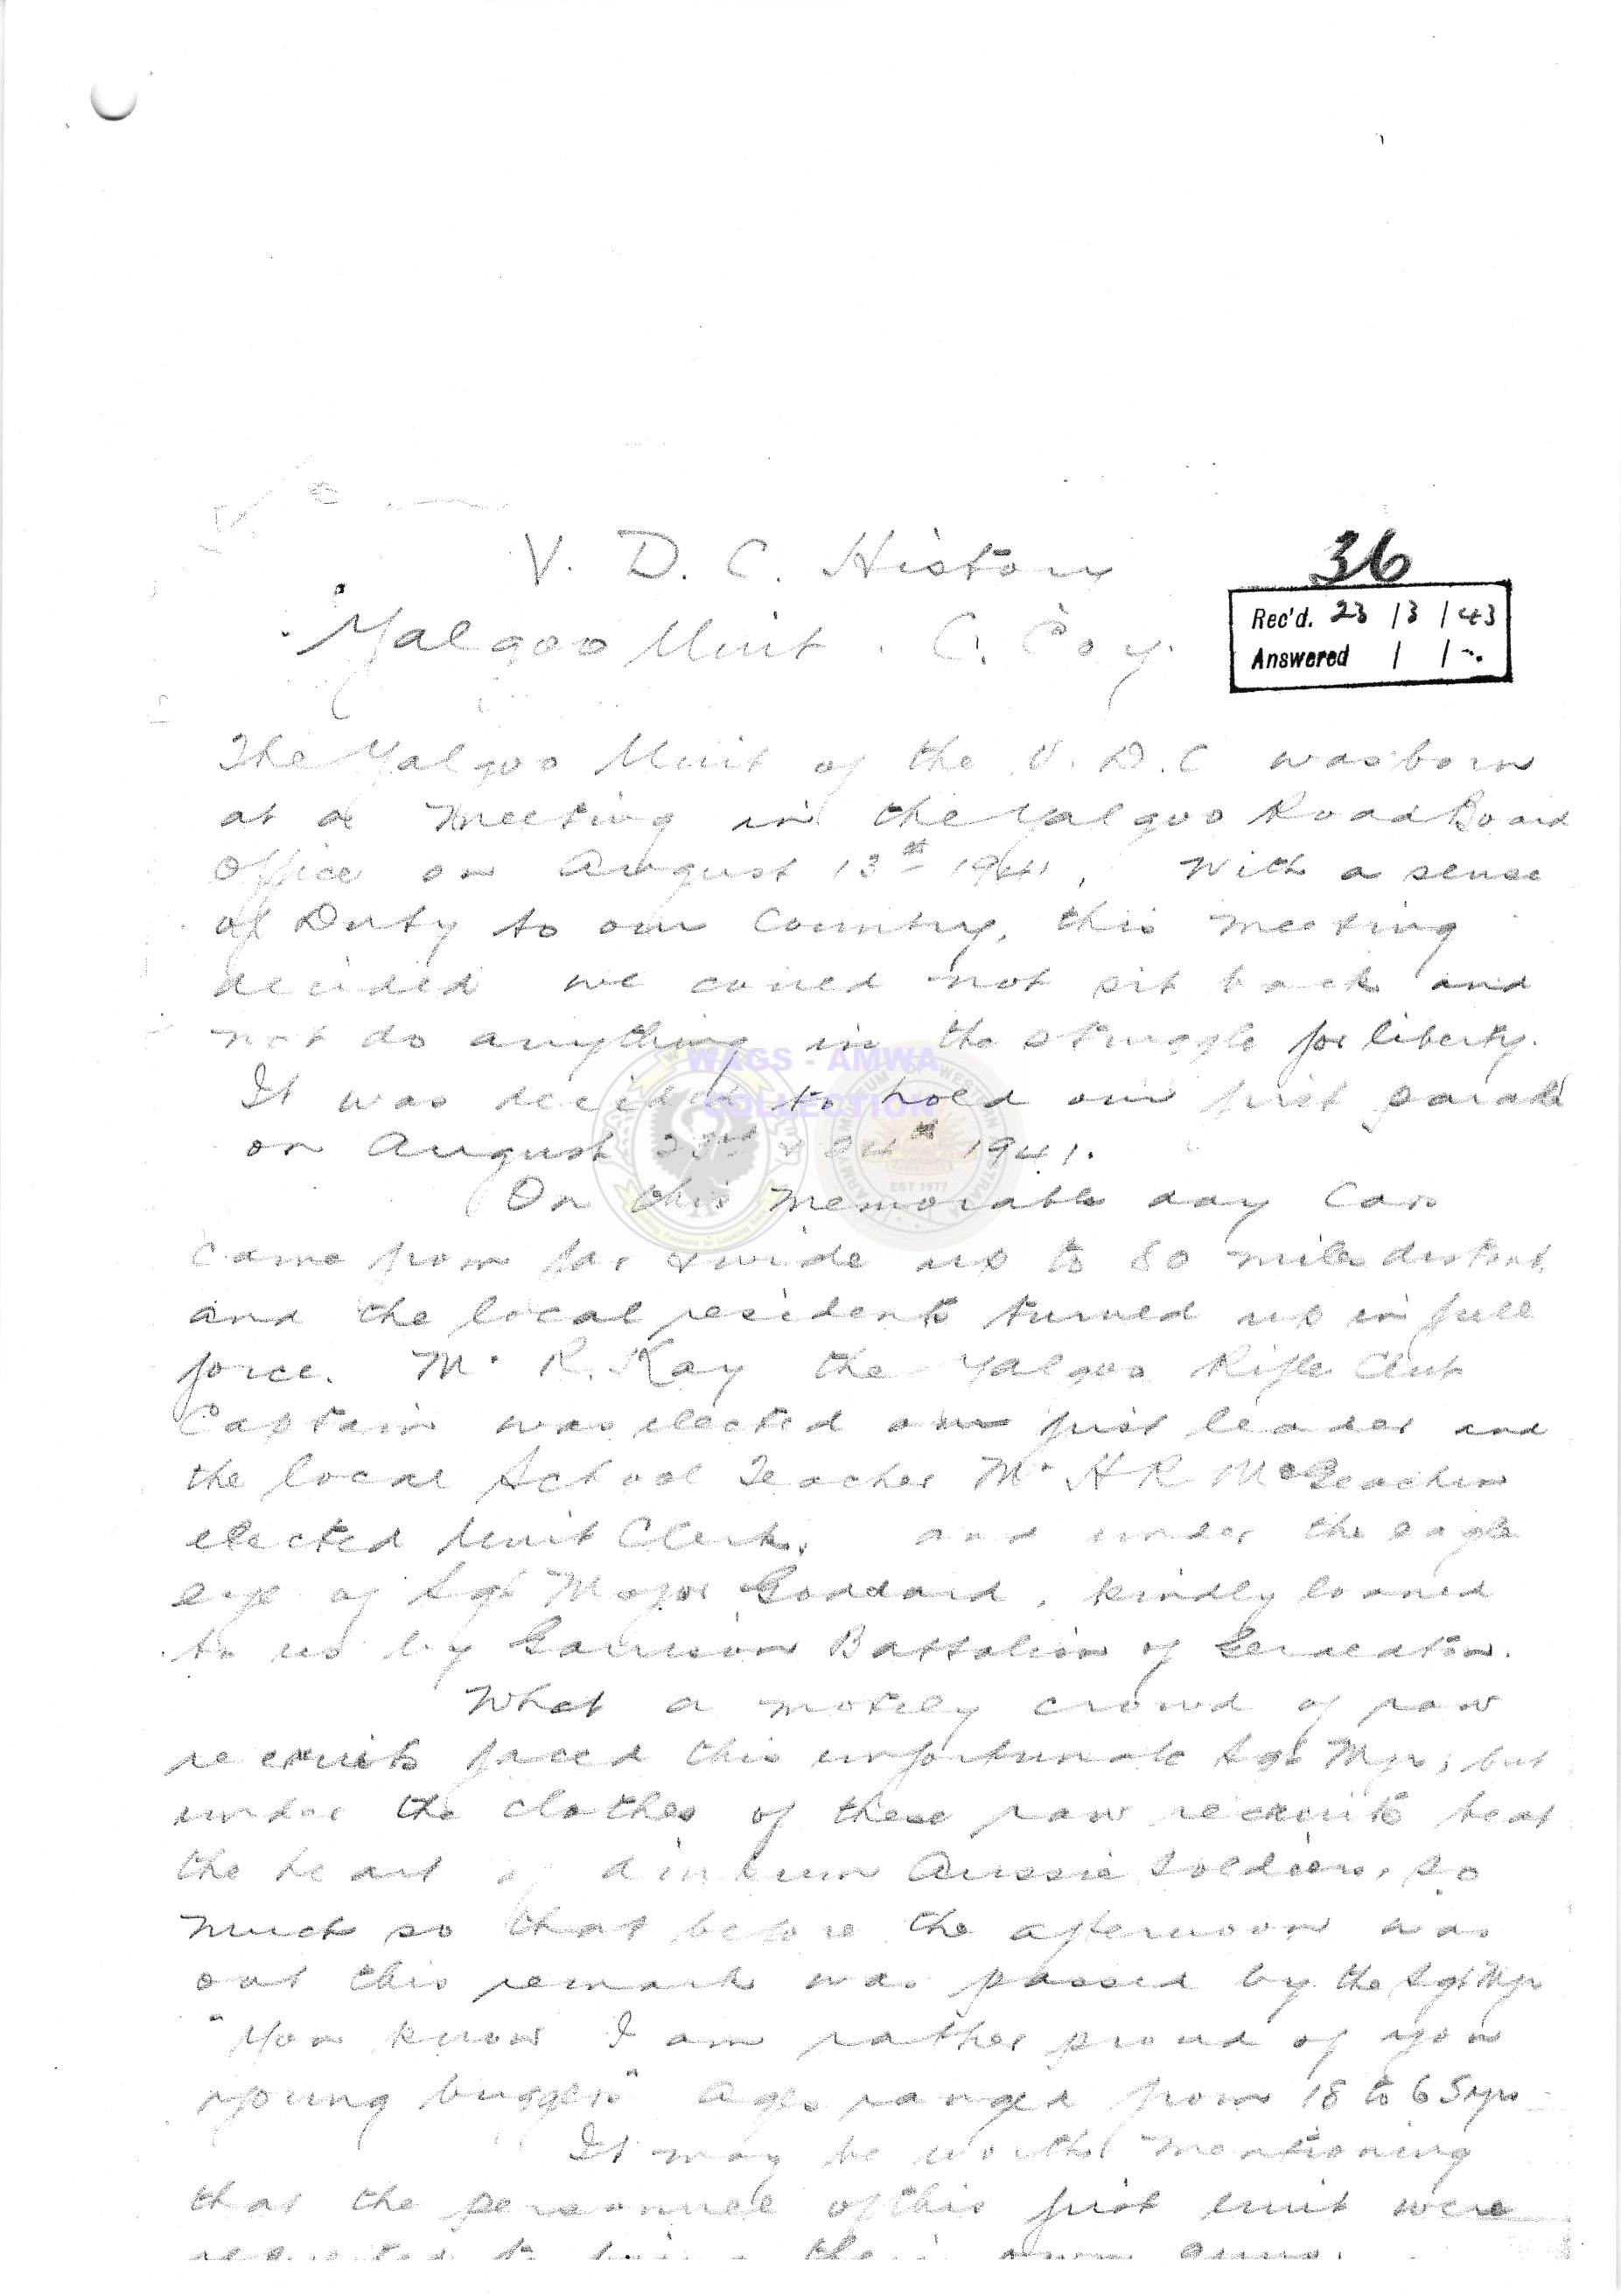 V. D. C. History
36
Rec'd. 23 / 3 / 43
Answered / /
Yalgoo Unit. C. Coy.
The Yalgoo Unit of the V. D. C was born
at a meeting in the Yalgoo Road Board
Office on August 13th 1941. With a sense
of Duty to our Country, this meeting
decided we could not sit back and
not do anything in the struggle for liberty.
It was decided to hold our first parade
on August 23rd & 24th 1941.
WAGS - AMWA
COLLECTION
EST 1977
On this memorable day Cars
came from far & wide up to 80 miles distant,
and the local residents turned up in full
force. Mr R. Kay the Yalgoo Rifle Club
Captain was elected our first leader and
the local School Teacher Mr H R McGeachin
elected Unit Clerk, and under the eagle
eye of Sgt Major Goddard, kindly loaned
to us by Garrison Battalion of Geraldton.
What a motely crowd of raw
recruits faced this unfortunate Sgt Mjr, but
under the clothes of these raw recruits beat
the heart of dinkum Aussie Soldiers, so
much so that before the afternoon was
out this remark was passed by the Sgt Mjr
"You know I am rather proud of you
young buggers" Ages ranged from 18 to 65 yrs
It may be worth mentioning
that the personnel of this first unit were